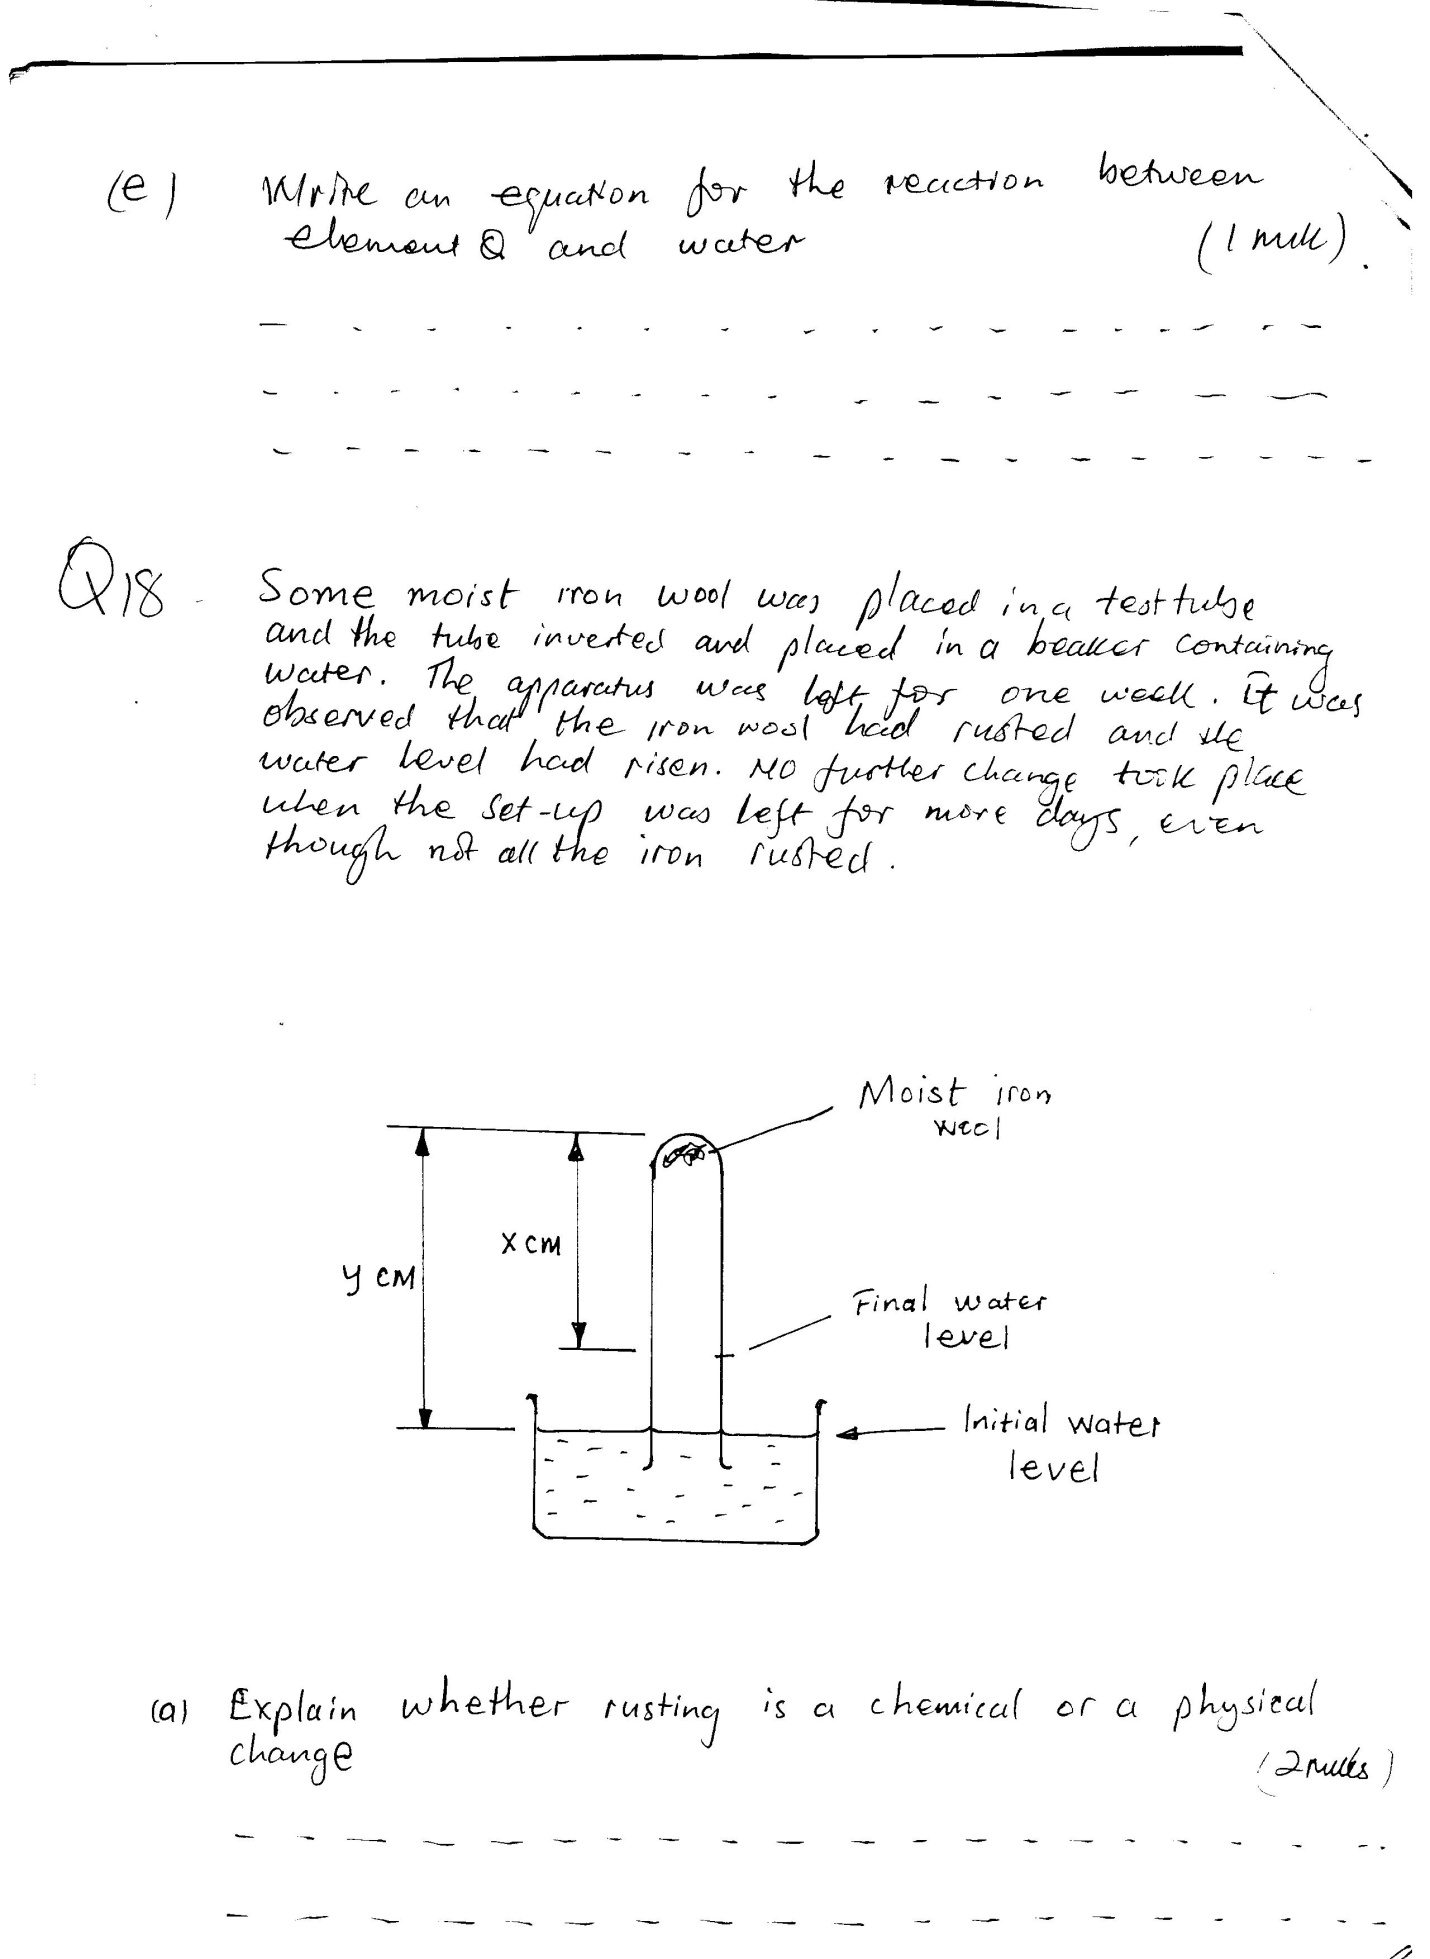 (e) Write an equation for the reaction between
element Q and water (1 mk).
Q18. Some moist iron wool was placed in a test tube
and the tube inverted and placed in a beaker containing
water. The apparatus was left for one week. It was
observed that the iron wool had rusted and the
water level had risen. No further change took place
when the set-up was left for more days, even
though not all the iron rusted.
Moist iron
wool
x cm
y cm
Final water
level
Initial water
level
(a) Explain whether rusting is a chemical or a physical
change (2 mks)